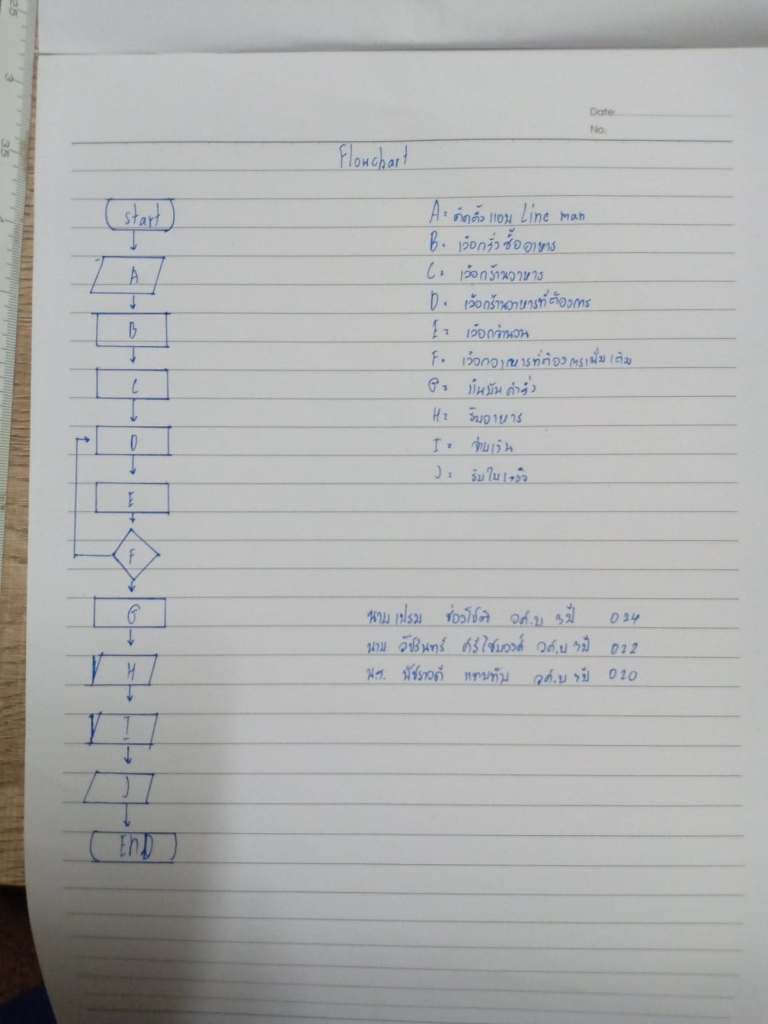 Date
No.
Flowchart
start
A
B
C
D
E
F
G
H
I
J
END
A= ติดตั้งแอพ Line man
B= เลือกสั่งซื้ออาหาร
C= เลือกร้านอาหาร
D= เลือกร้านอาหารที่ต้องการ
E= เลือกจำนวน
F= เลือกอาหารที่ต้องการเพิ่มเติม
G= ยืนยันคำสั่ง
H= รับอาหาร
I= จ่ายเงิน
J= รับใบเสร็จ
นายเปรม วศ.บ 024
นาย วศ.บ 022
นส. วศ.บ 020
35